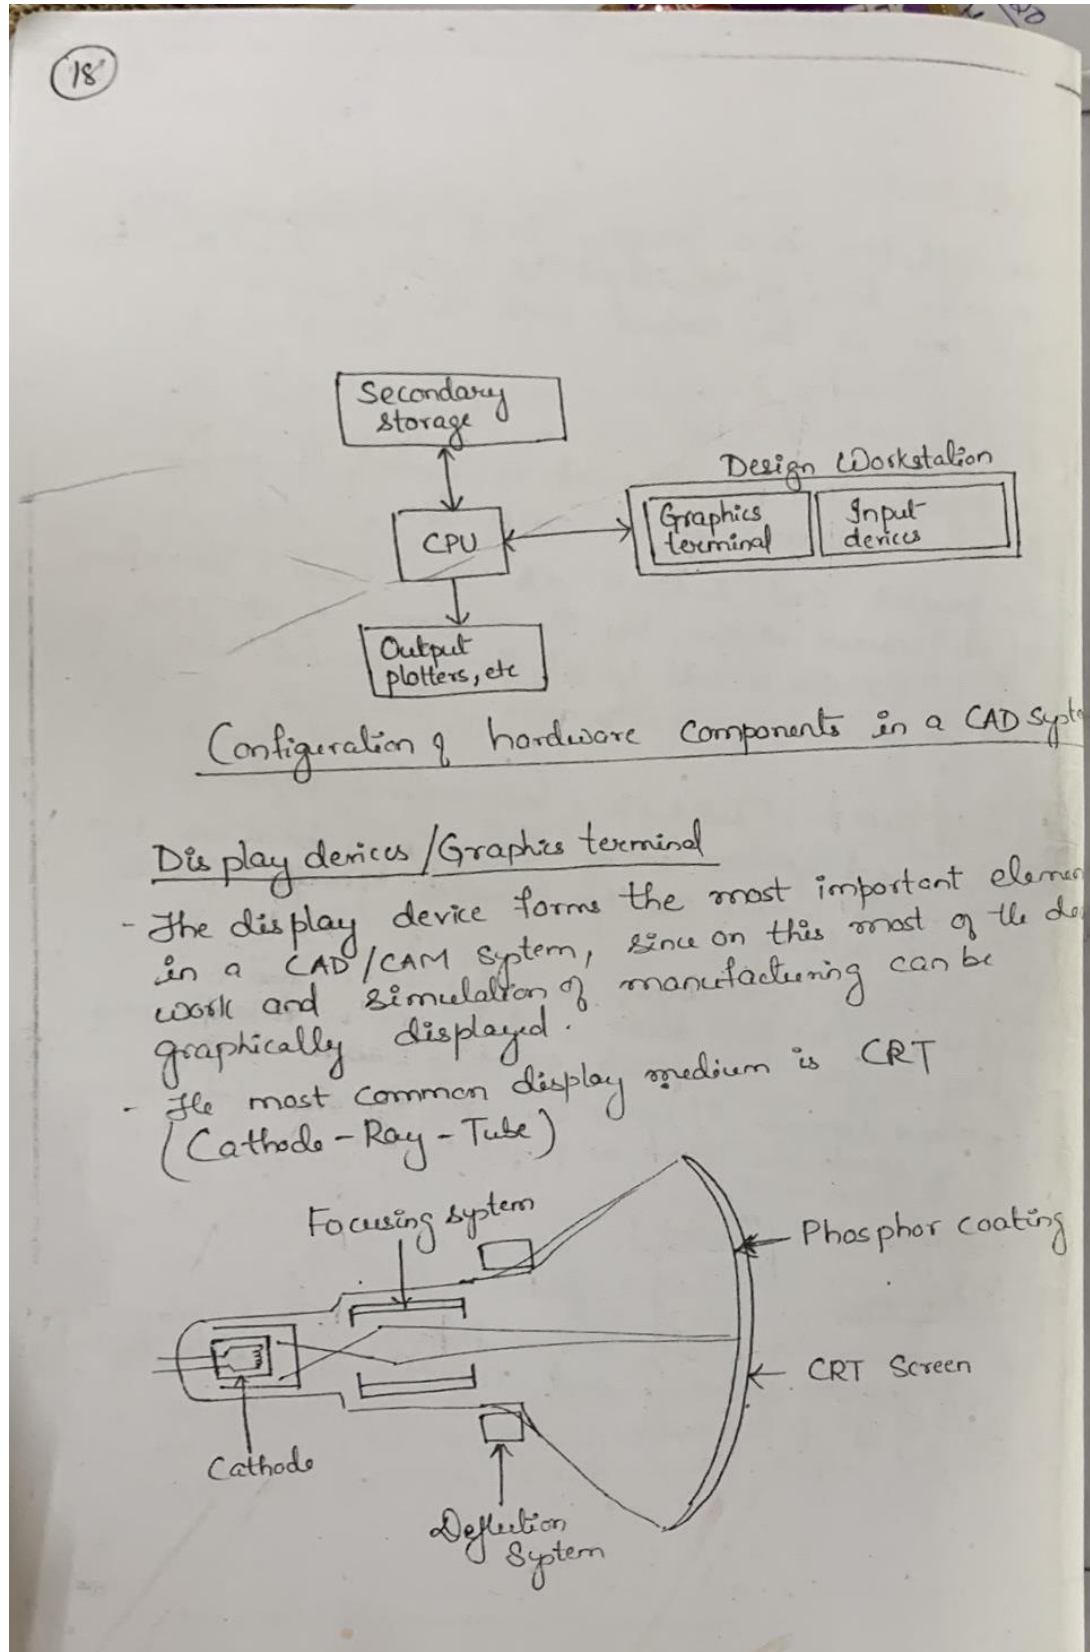 18
Secondary
storage
Design Workstation
CPU
Graphics
terminal
Input
devices
Output
plotters, etc
Configuration of hardware components in a CAD Syst
Display devices / Graphics terminal
- The display device forms the most important elemen
in a CAD/CAM system, since on this most of the de
work and simulation of manufacturing can be
graphically displayed.
- The most common display medium is CRT
(Cathode-Ray-Tube)
Focusing system
Phosphor coating
CRT Screen
Cathode
Deflection
System